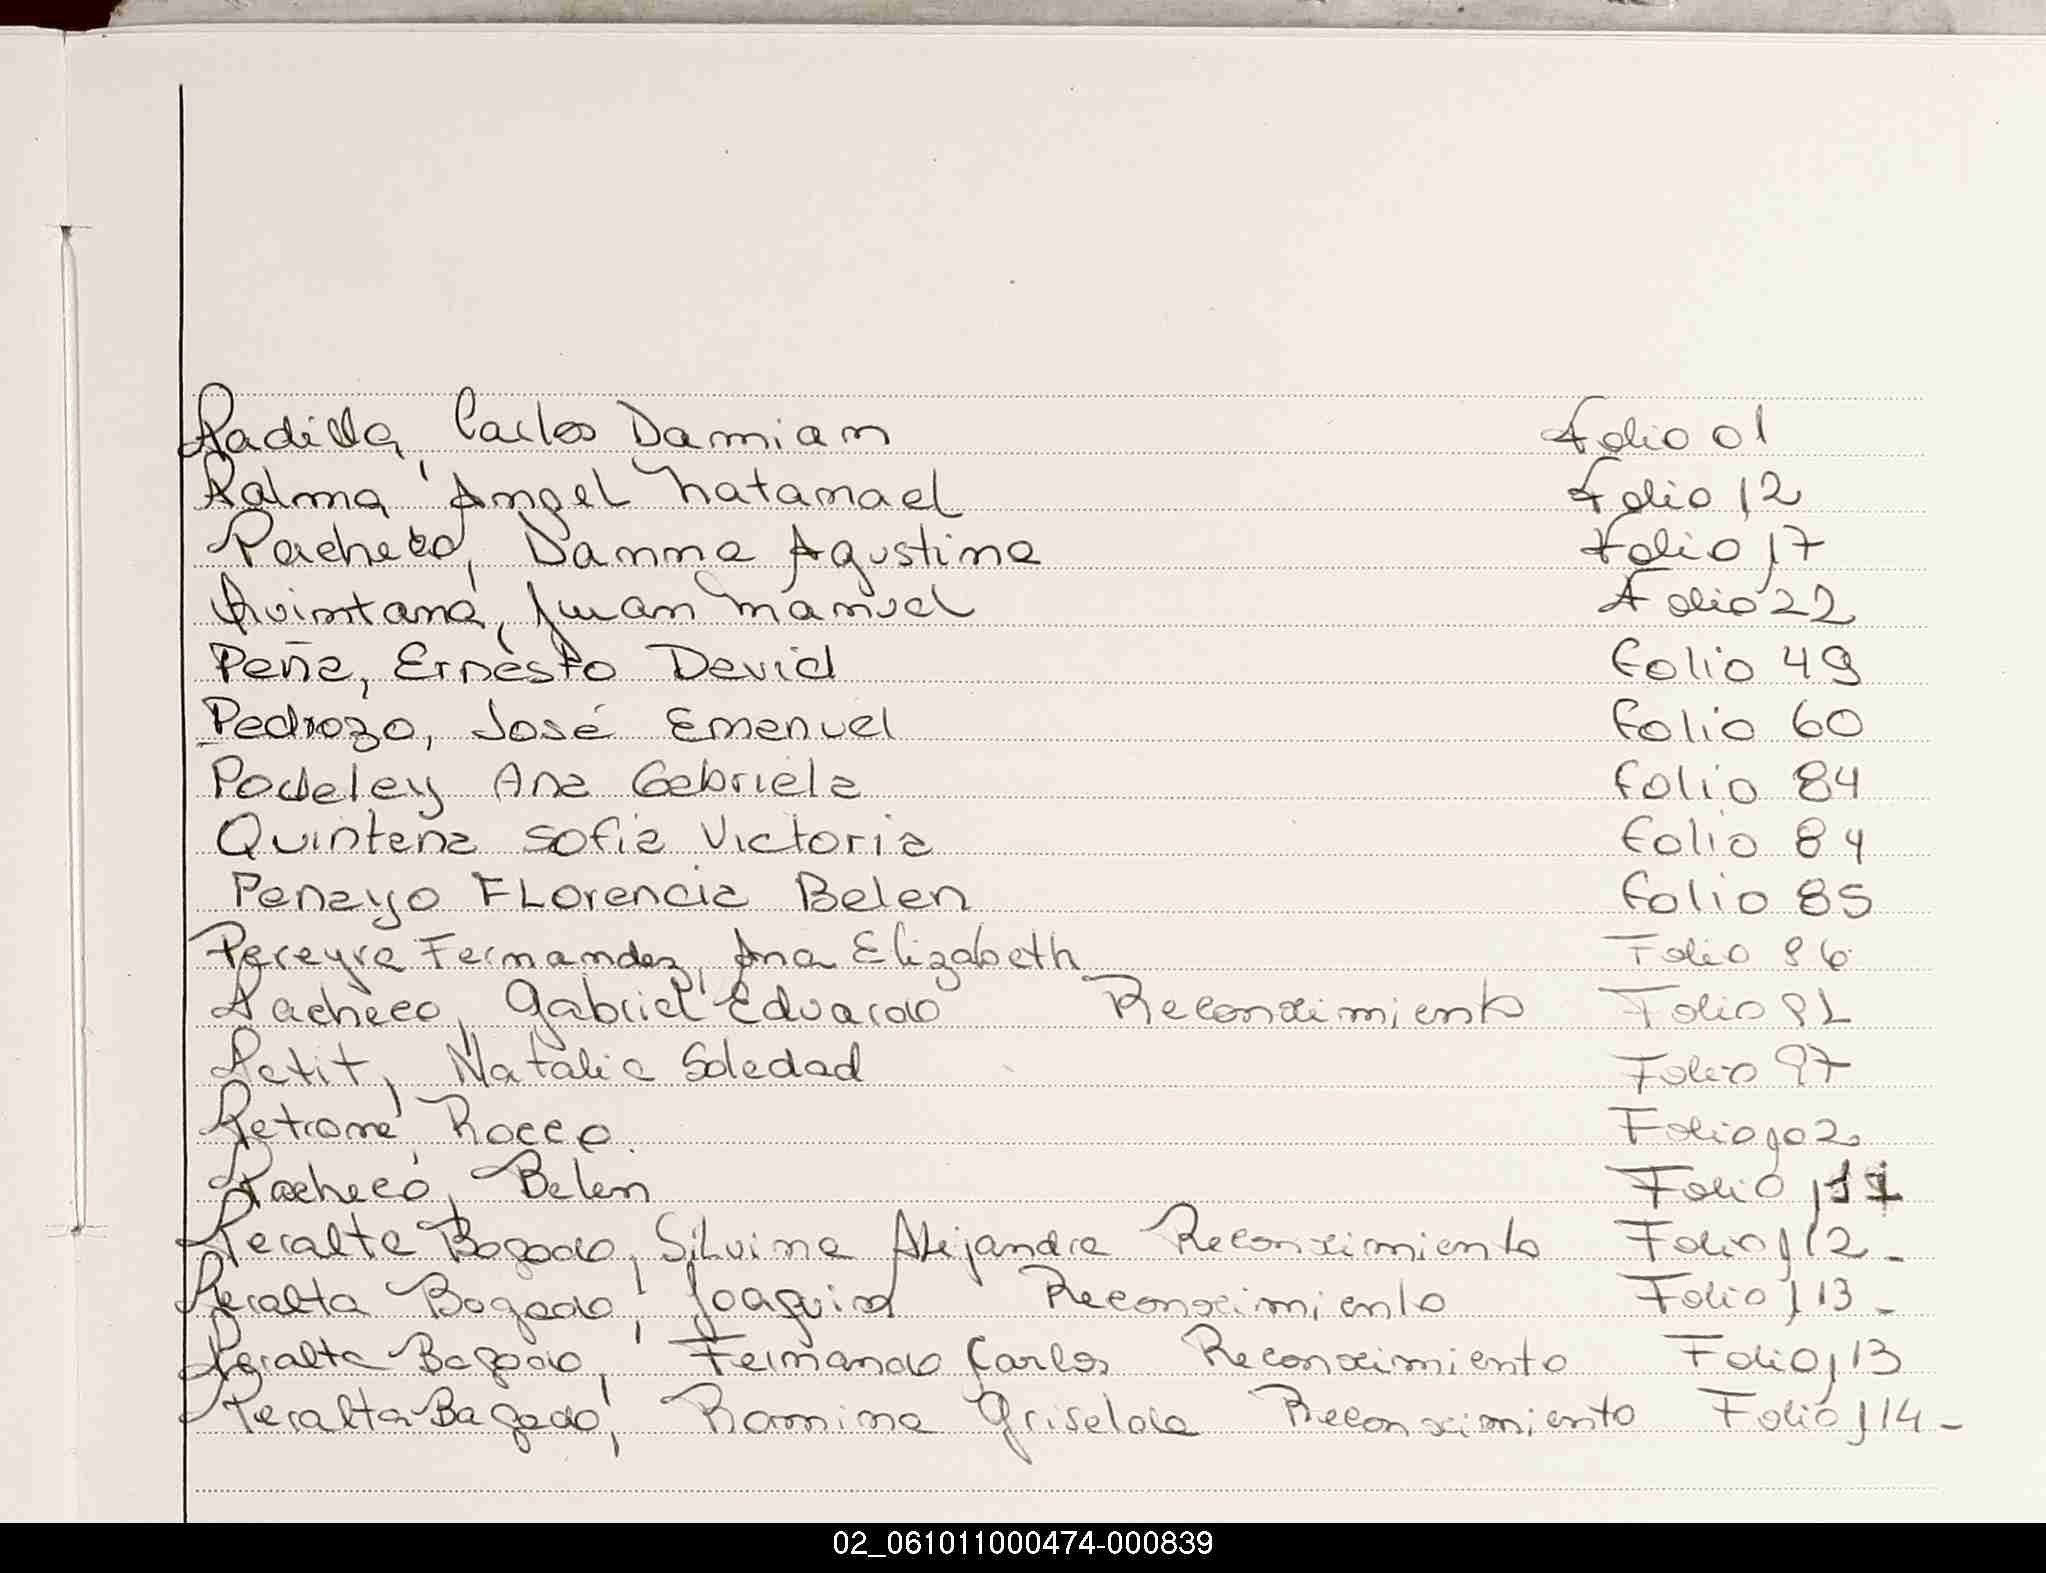 Padilla, Carlos Damian Folio 01
Palma, Angel Natanael Folio 12
Pacheco, Danna Agustina Folio 17
Quintana, Juan Manuel Folio 22
Peña, Ernesto David Folio 49
Pedrozo, José Emanuel Folio 60
Podeley Ana Gabriela Folio 84
Quintana Sofia Victoria Folio 84
Penayo FLorencia Belen Folio 85
Pereyra Fernandez, Ana Elizabeth Folio
Pacheco, Gabriel Eduardo Reconocimiento Folio
Petit, Natalia Soledad Folio 97
Petrone, Rocco. Folio 102
Pacheco, Belén Folio
Peralta Bogado, Silvina Alejandra Reconocimiento Folio 112-
Peralta Bogado, Joaquin Reconocimiento Folio 113-
Peralta Bogado, Fernando Carlos Reconocimiento Folio 113
Peralta Bogado, Romina Griselda Reconocimiento Folio 114-
02_061011000474-000839